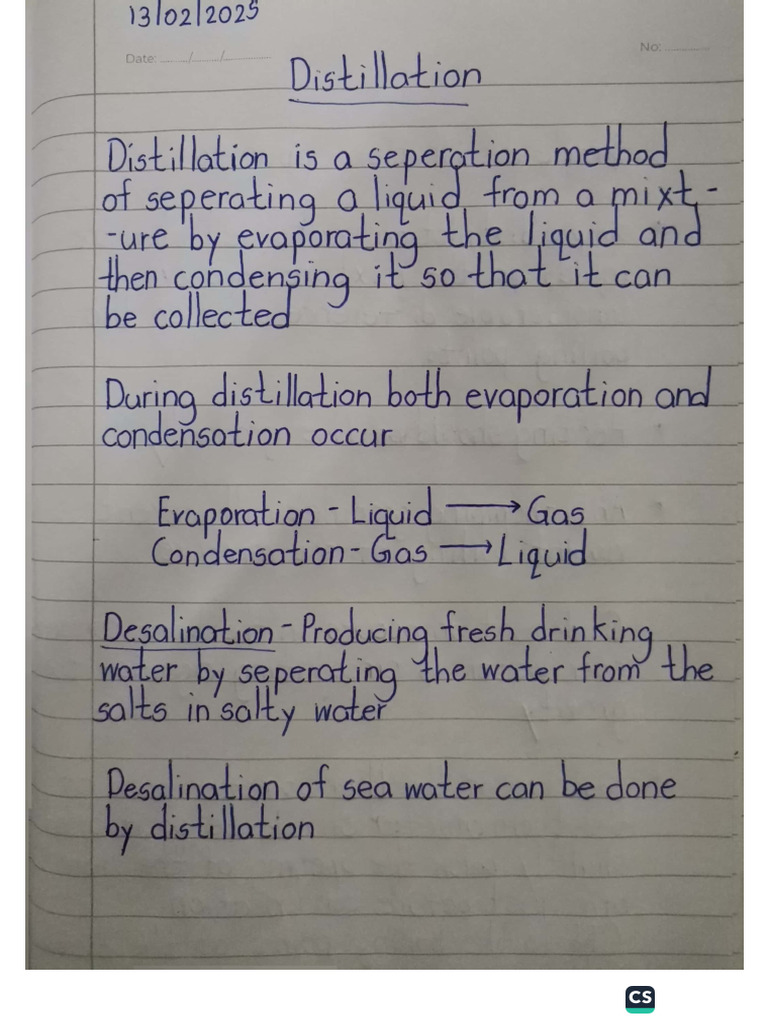 13/02/2025
Date: ....../......./..............
No: ............
Distillation
Distillation is a seperation method
of seperating a liquid from a mixt-
-ure by evaporating the liquid and
then condensing it so that it can
be collected
During distillation both evaporation and
condensation occur
Evaporation - Liquid ⟶ Gas
Condensation - Gas ⟶ Liquid
Desalination - Producing fresh drinking
water by seperating the water from the
salts in salty water
Desalination of sea water can be done
by distillation
CS